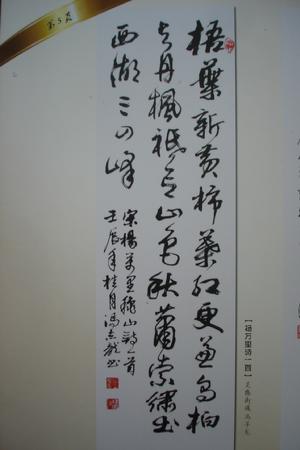 第5页
梧葉新黄柿葉红更兼乌柏
与丹枫祇言山色秋蕭索绣出
西湖三四峰
宋楊萬里秋山詩一首
壬辰年桂月冯志龙书
【杨万里诗一首】